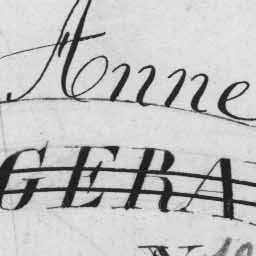 Anne
GERA